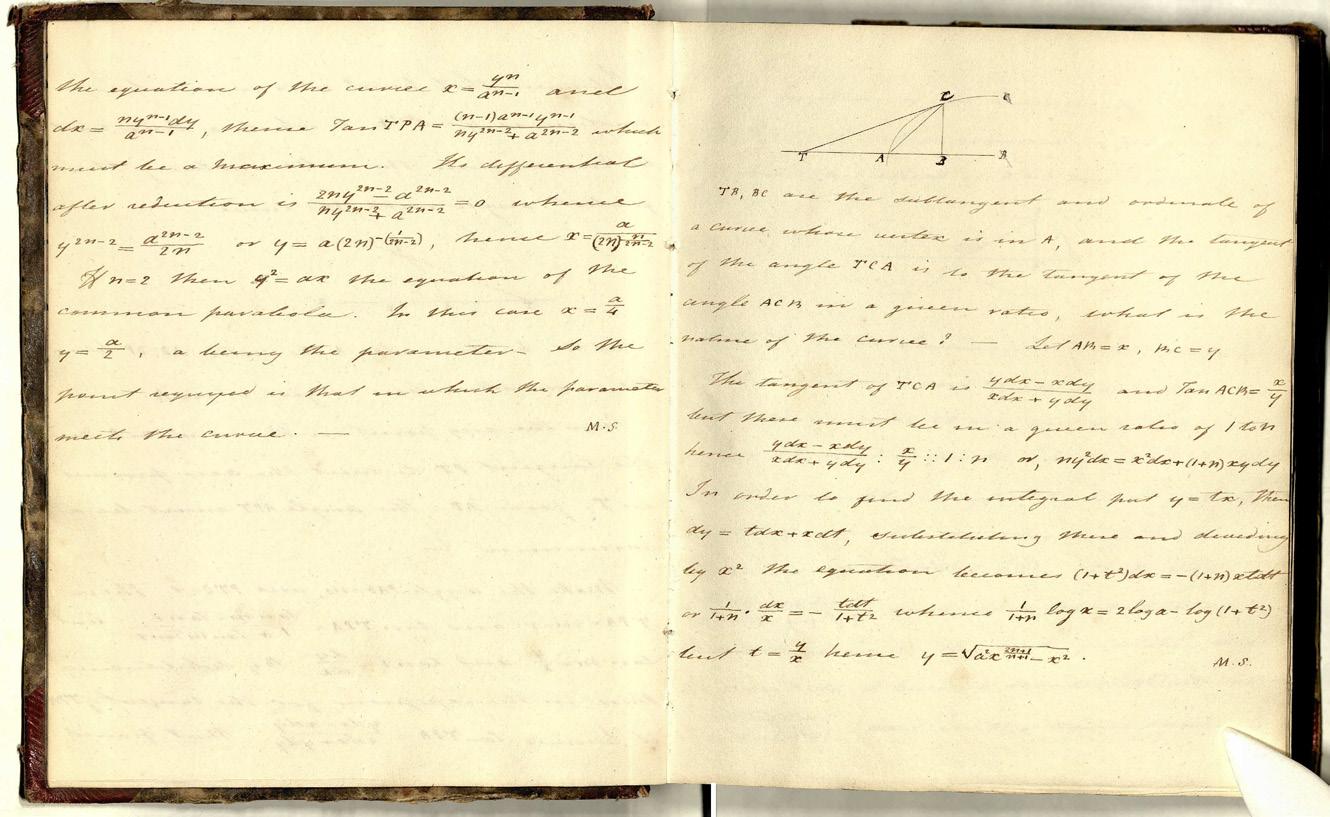 the equation of the curve x = yⁿ/aⁿ⁻¹ and
dx = nyⁿ⁻¹dy/aⁿ⁻¹, thence Tan TPA = (n-1)aⁿ⁻¹yⁿ⁻¹/ny²ⁿ⁻²+a²ⁿ⁻² which
must be a maximum. Its differential
after reduction is 2ny²ⁿ⁻² - a²ⁿ⁻²/ny²ⁿ⁻²+a²ⁿ⁻² = 0 whence
y²ⁿ⁻² = a²ⁿ⁻²/2n or y = a(2n)^-(1/2n-2), hence x = a/(2n)^(n/2n-2)
If n=2 then y² = ax the equation of the
common parabola. In this case x = a/4
y = a/2, a being the parameter - So the
point required is that in which the parameter
meets the curve. —
M.S.
C
T A B
TB, BC are the subtangent and ordinate of
a curve whose vertex is in A, and the tangent
of the angle TCA is to the tangent of the
angle ACB in a given ratio, what is the
nature of the curve? — Let AB = x, BC = y
The tangent of TCA is ydx - xdy/xdx + ydy and Tan ACB = x/y
but these must be in a given ratio of 1 to n
hence ydx - xdy/xdx + ydy : x/y :: 1 : n or, ny²dx = x²dx + (1+n)xydy
In order to find the integral put y = tx, then
dy = tdx + xdt, substituting these and dividing
by x² the equation becomes (1+t²)dx = -(1+n)xtdt
or 1/1+n · dx/x = - tdt/1+t² whence 1/1+n log x = 2 log a - log (1+t²)
but t = y/x hence y = √a²x^(2n+1/n+1) - x².
M.S.